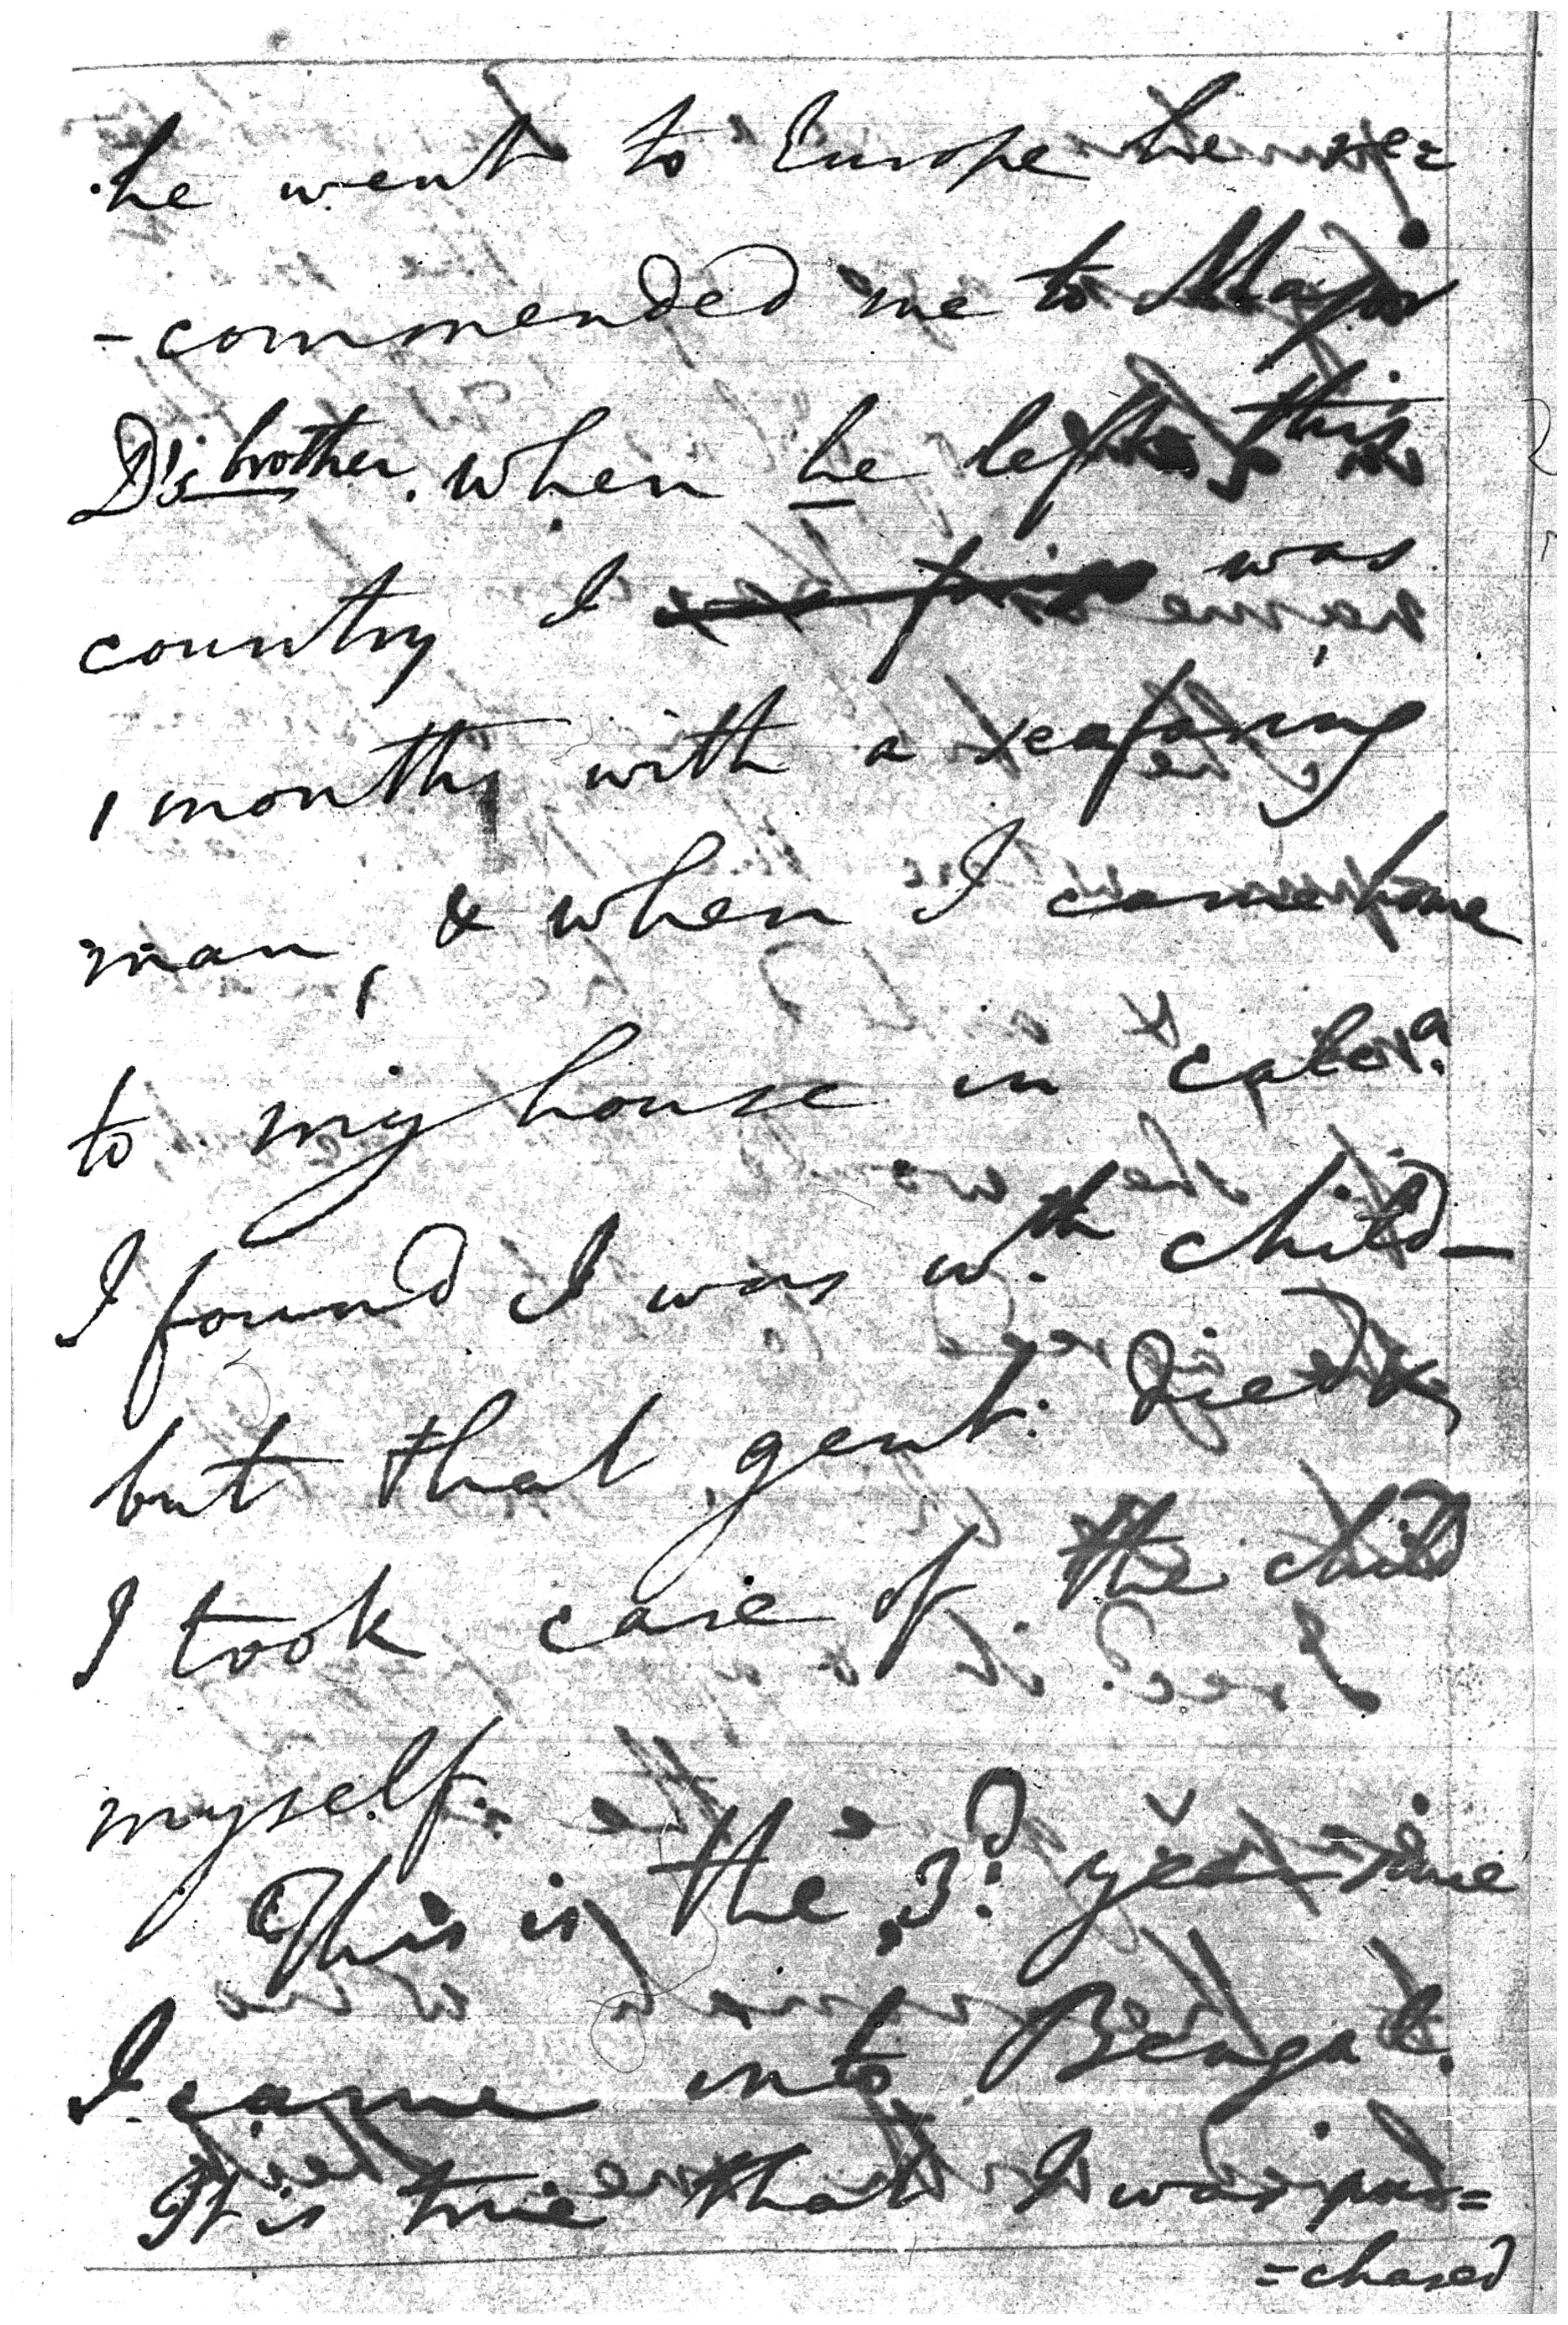 he went to Europe he re=
-commended me to Major
D's brother. when he left this
country I was
1 months with a seafaring
man, & when I came home
to my house in Calcta.
I found I was w.th child—
but that gent. died &
I took care of the child
myself.
This is the 3.d year since
I came into Bengal.
It is true that I was pur=
=chased